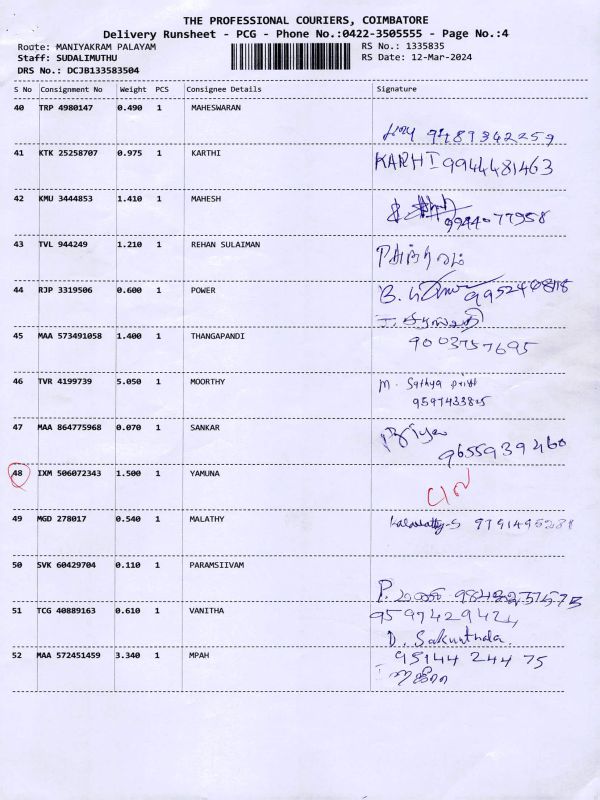 THE PROFESSIONAL COURIERS, COIMBATORE
Delivery Runsheet - PCG - Phone No.:0422-3505555 - Page No.:4
Route: MANIYAKRAM PALAYAM
RS No.: 1335835
Staff: SUDALIMUTHU
RS Date: 12-Mar-2024
DRS No.: DCJB133583504
S No Consignment No Weight PCS Consignee Details Signature
40 TRP 4980147 0.490 1 MAHESWARAN
9489342259
41 KTK 25258707 0.975 1 KARTHI KARHI 9944481463
42 KMU 3444853 1.410 1 MAHESH
9944077958
43 TVL 944249 1.210 1 REHAN SULAIMAN
44 RJP 3319506 0.600 1 POWER
45 MAA 573491058 1.400 1 THANGAPANDI
9003757695
46 TVR 4199739 5.050 1 MOORTHY M. Sathya
9597433825
47 MAA 864775968 0.070 1 SANKAR Priya
9655939460
48 IXM 506072343 1.500 1 YAMUNA
49 MGD 278017 0.540 1 MALATHY
50 SVK 60429704 0.110 1 PARAMSIIVAM
51 TCG 40889163 0.610 1 VANITHA
D. Sakunthala
52 MAA 572451459 3.340 1 MPAH 95144 244 75